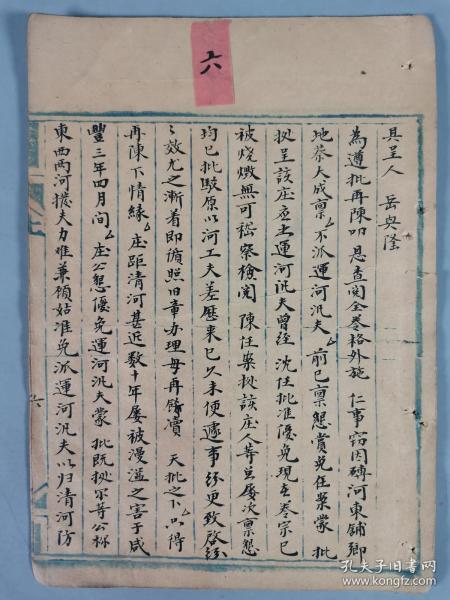 六
具呈人 岳奐隆
為遵批再陳叩 恩查閱全卷格外施 仁事竊因磚河東鋪鄉
地蔡大成稟 不派運河汛夫 前已稟懇賞免在案蒙 批
拠呈該庄應出運河汛夫曾經 沈任批准優免現在卷宗已
被燒燬無可稽察檢閱 陳任案拠該庄人等並屢次稟懇
均已批駁原以河工夫差歷來已久未便遽事紛更致啓紛
效尤之漸着即循照旧章办理毋再饒瀆 天批之下 只得
再陳下情緣 庄距清河甚近数十年屢被漫溢之害于咸
豐三年四月间 庄公懇優免運河汛夫蒙 批既拠尔等公称
東西两河撥夫力难兼顧姑准免派運河汛夫以归清河防
孔夫子旧书网